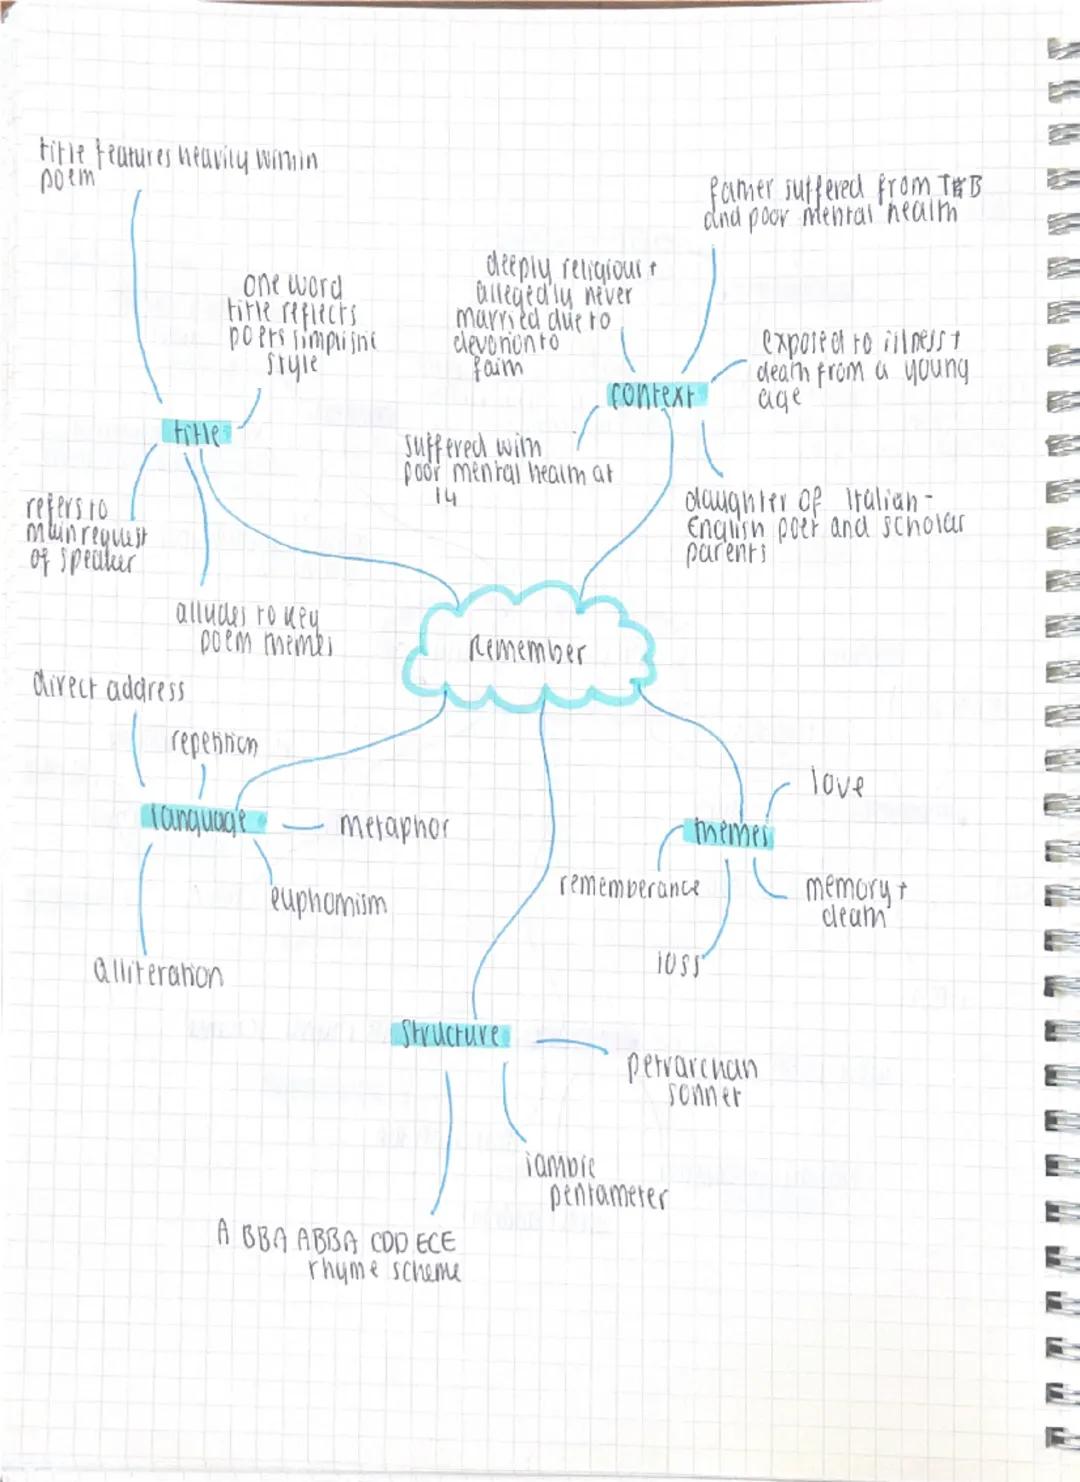 title features heavily within
poem
one word
title reflects
poets simplistic
style
title
refers to
main request
of speaker
alludes to key
poem themes
father suffered from TB
and poor mental health
deeply religious +
allegedly never
married due to
devotion to
faith
exposed to illness +
death from a young
age
context
suffered with
poor mental health at
14
daughter of Italian-
English poet and scholar
parents
Remember
direct address
repetition
language
metaphor
euphomism
alliteration
love
themes
rememberance
memory +
death
loss
structure
petrarchan
sonnet
iambic
pentameter
ABBA ABBA CDD ECE
rhyme scheme